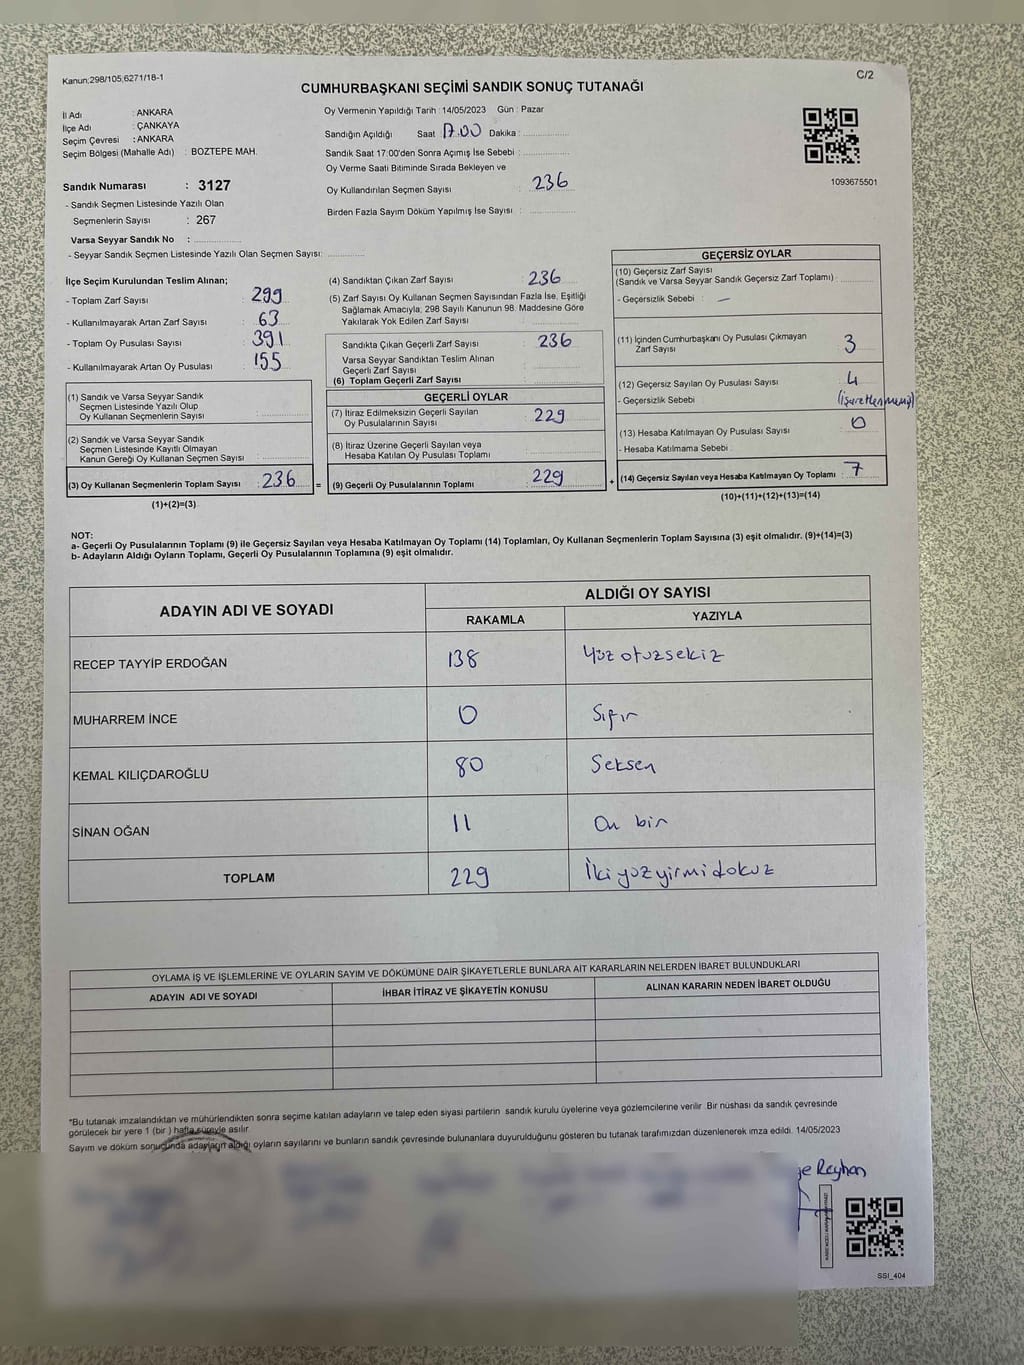 Kanun;298/105;6271/18-1
C/2
CUMHURBAŞKANI SEÇİMİ SANDIK SONUÇ TUTANAĞI
İl Adı : ANKARA
İlçe Adı : ÇANKAYA
Seçim Çevresi : ANKARA
Seçim Bölgesi (Mahalle Adı) : BOZTEPE MAH.
Sandık Numarası : 3127
- Sandık Seçmen Listesinde Yazılı Olan
Seçmenlerin Sayısı : 267
Varsa Seyyar Sandık No :
- Seyyar Sandık Seçmen Listesinde Yazılı Olan Seçmen Sayısı:
Oy Vermenin Yapıldığı Tarih : 14/05/2023 Gün : Pazar
Sandığın Açıldığı Saat 17.00 Dakika :
Sandık Saat 17:00'den Sonra Açımış İse Sebebi :
Oy Verme Saati Bitiminde Sırada Bekleyen ve
Oy Kullandırılan Seçmen Sayısı : 236
Birden Fazla Sayım Döküm Yapılmış İse Sayısı :
1093675501
İlçe Seçim Kurulundan Teslim Alınan;
- Toplam Zarf Sayısı : 299
- Kullanılmayarak Artan Zarf Sayısı : 63
- Toplam Oy Pusulası Sayısı : 391
- Kullanılmayarak Artan Oy Pusulası : 155
(1) Sandık ve Varsa Seyyar Sandık
Seçmen Listesinde Yazılı Olup
Oy Kullanan Seçmenlerin Sayısı :
(2) Sandık ve Varsa Seyyar Sandık
Seçmen Listesinde Kayıtlı Olmayan
Kanun Gereği Oy Kullanan Seçmen Sayısı :
(3) Oy Kullanan Seçmenlerin Toplam Sayısı : 236 =
(1)+(2)=(3)
(4) Sandıktan Çıkan Zarf Sayısı : 236
(5) Zarf Sayısı Oy Kullanan Seçmen Sayısından Fazla İse, Eşitliği
Sağlamak Amacıyla; 298 Sayılı Kanunun 98. Maddesine Göre
Yakılarak Yok Edilen Zarf Sayısı :
Sandıkta Çıkan Geçerli Zarf Sayısı : 236
Varsa Seyyar Sandıktan Teslim Alınan
Geçerli Zarf Sayısı :
(6) Toplam Geçerli Zarf Sayısı :
GEÇERLİ OYLAR
(7) İtiraz Edilmeksizin Geçerli Sayılan
Oy Pusulalarının Sayısı : 229
(8) İtiraz Üzerine Geçerli Sayılan veya
Hesaba Katılan Oy Pusulası Toplamı :
(9) Geçerli Oy Pusulalarının Toplamı : 229 +
GEÇERSİZ OYLAR
(10) Geçersiz Zarf Sayısı
(Sandık ve Varsa Seyyar Sandık Geçersiz Zarf Toplamı) :
- Geçersizlik Sebebi : —
(11) İçinden Cumhurbaşkanı Oy Pusulası Çıkmayan
Zarf Sayısı : 3
(12) Geçersiz Sayılan Oy Pusulası Sayısı : 4
- Geçersizlik Sebebi : (İşaretlenmemiş)
(13) Hesaba Katılmayan Oy Pusulası Sayısı : 0
- Hesaba Katılmama Sebebi :
(14) Geçersiz Sayılan veya Hesaba Katılmayan Oy Toplamı : 7
(10)+(11)+(12)+(13)=(14)
NOT:
a- Geçerli Oy Pusulalarının Toplamı (9) ile Geçersiz Sayılan veya Hesaba Katılmayan Oy Toplamı (14) Toplamları, Oy Kullanan Seçmenlerin Toplam Sayısına (3) eşit olmalıdır. (9)+(14)=(3)
b- Adayların Aldığı Oyların Toplamı, Geçerli Oy Pusulalarının Toplamına (9) eşit olmalıdır.
ADAYIN ADI VE SOYADI ALDIĞI OY SAYISI
RAKAMLA YAZIYLA
RECEP TAYYİP ERDOĞAN 138 Yüz otuzsekiz
MUHARREM İNCE 0 Sıfır
KEMAL KILIÇDAROĞLU 80 Seksen
SİNAN OĞAN 11 On bir
TOPLAM 229 İkiyüzyirmidokuz
OYLAMA İŞ VE İŞLEMLERİNE VE OYLARIN SAYIM VE DÖKÜMÜNE DAİR ŞİKAYETLERLE BUNLARA AİT KARARLARIN NELERDEN İBARET BULUNDUKLARI
ADAYIN ADI VE SOYADI İHBAR İTİRAZ VE ŞİKAYETİN KONUSU ALINAN KARARIN NEDEN İBARET OLDUĞU
*Bu tutanak imzalandıktan ve mühürlendikten sonra seçime katılan adayların ve talep eden siyasi partilerin sandık kurulu üyelerine veya gözlemcilerine verilir. Bir nüshası da sandık çevresinde
görülecek bir yere 1 (bir ) hafta süreyle asılır.
Sayım ve döküm sonucunda adayların aldığı oyların sayılarını ve bunların sandık çevresinde bulunanlara duyurulduğunu gösteren bu tutanak tarafımızdan düzenlenerek imza edildi. 14/05/2023
Reyhan
SSI_404